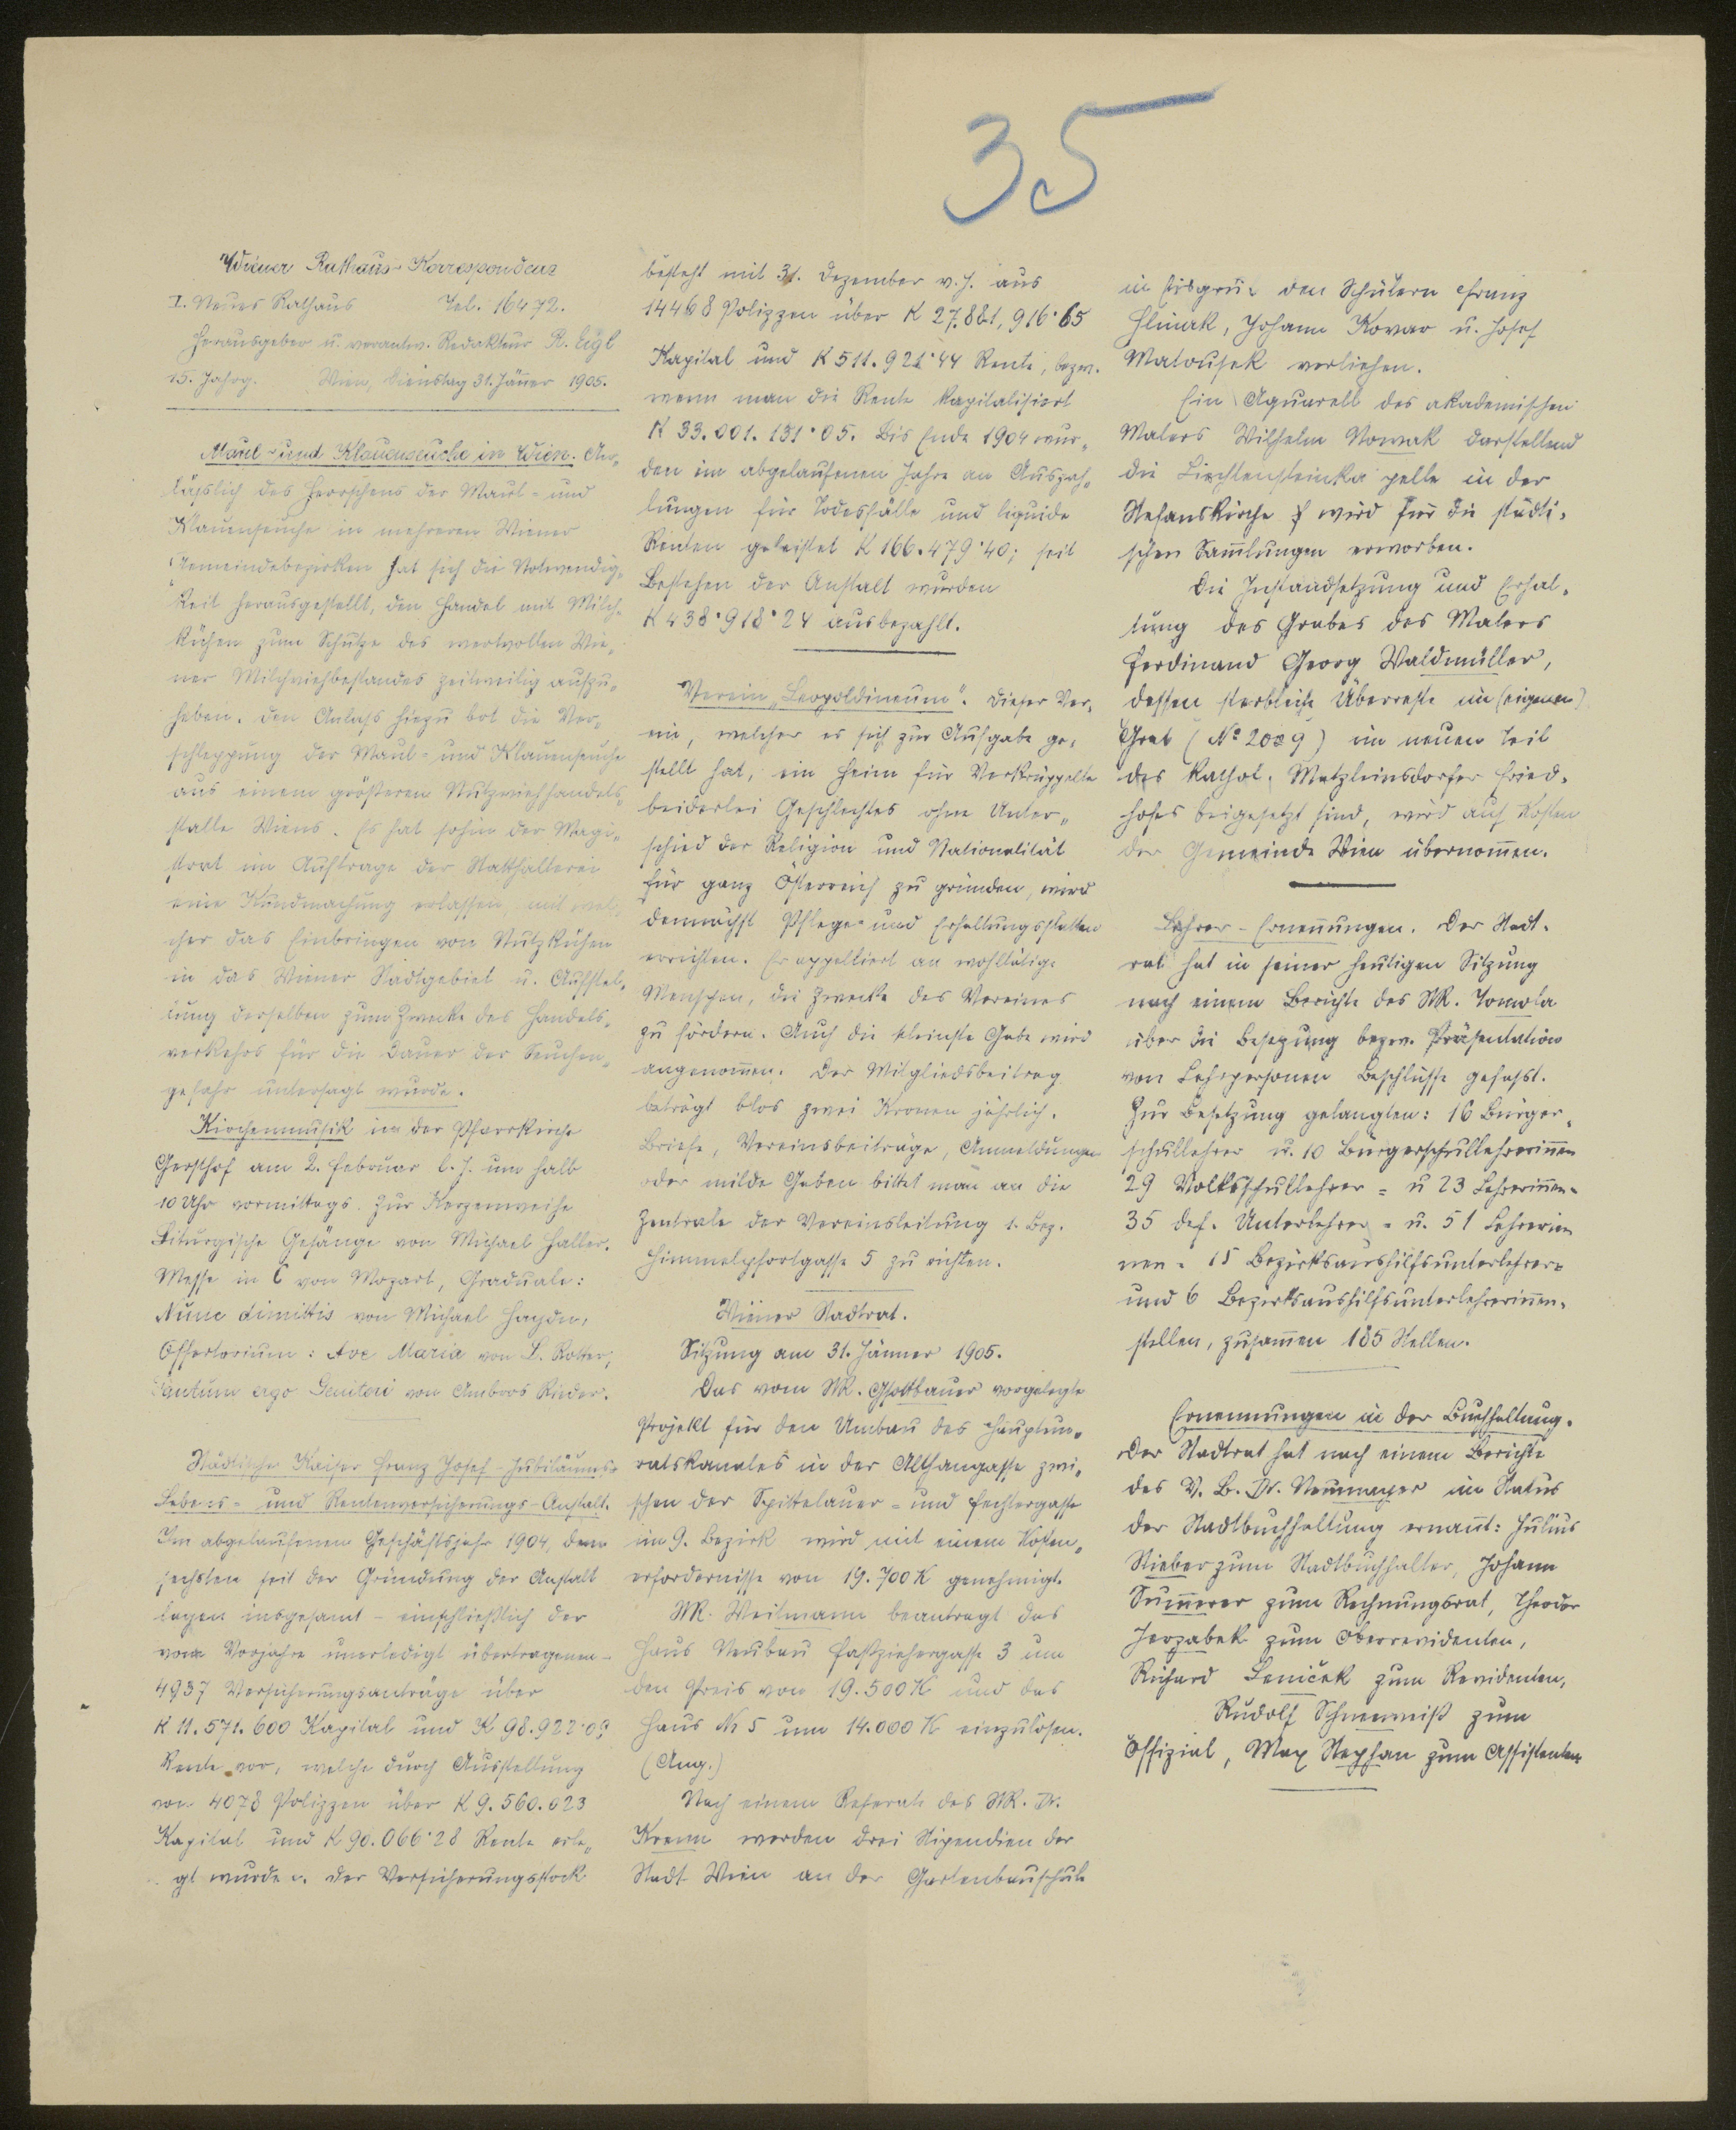 35
Wiener Rathaus-Korrespondenz
I. Neues Rathaus Tel. 16472.
Herausgeber u. verantw. Redakteur R. Eigl
15. Jahrg. Wien, Dienstag 31. Jänner 1905.
Maul- und Klauenseuche in Wien. An„
läßlich des Herrschens der Maul- und
Klauenseuche in mehreren Wiener
Gemeindebezirken hat sich die Notwendig„
keit herausgestellt, den Handel mit Milch„
kühen zum Schutze des wertvollen Wie„
ner Milchviehbestandes zeitweilig aufzu„
heben. Den Anlaß hiezu bot die Ver„
schleppung der Maul- und Klauenseuche
aus einem größeren Nutzviehhandels„
stalle Wiens. Es hat sohin der Magi„
strat im Auftrage der Statthalterei
eine Kundmachung erlassen, mit wel„
cher das Einbringen von Nutzkühen
in das Wiener Stadtgebiet u. Aufstel„
lung derselben zum Zwecke des Handels„
verkehrs für die Dauer der Seuchen„
gefahr untersagt wurde.
Kirchenmusik in der Pfarrkirche
Gersthof am 2. Februar l. J. um halb
10 Uhr vormittags. Zur Kerzenweihe
Liturgische Gesänge von Michael Haller.
Messe in C von Mozart, Graduale:
Nunc dimittis von Michael Haydn,
Offertorium: Ave Maria von L. Rotter;
Tantum ergo Genitori von Ambros Rieder.
Städtische Kaiser Franz Josef-Jubiläums-
Lebens- und Rentenversicherungs-Anstalt.
Im abgelaufenen Geschäftsjahr 1904, dem
sechsten seit der Gründung der Anstalt
lagen insgesamt - einschließlich der
vom Vorjahre unerledigt übertragenen -
4937 Versicherungsanträge über
K 11.571.600 Kapital und K 98.922·03
Rente vor, welche durch Ausstellung
von 4078 Polizzen über K 9.560.023
Kapital und K 90.066·28 Rente erle„
gt wurden. Der Versicherungsstock
besteht mit 31. Dezember v. J. aus
14468 Polizzen über K 27.881,916·65
Kapital und K 511.921·44 Rente, bezw.
wenn man die Rente kapitalisiert
K 33.001.131·05. Bis Ende 1904 wur„
den im abgelaufenen Jahre an Auszah„
lungen für Todesfälle und liquide
Renten geleistet K 166.479·40; seit
Bestehen der Anstalt wurden
K 438·918·24 ausbezahlt.
Verein „Leopoldineum". Dieser Ver„
ein, welcher es sich zur Aufgabe ge„
stellt hat, ein Heim für Verkrüppelte
beiderlei Geschlechtes ohne Unter„
schied der Religion und Nationalität
für ganz Österreich zu gründen, wird
demnächst Pflege- und Erhaltungsstätten
errichten. Er appelliert an wohltätige
Menschen, die Zwecke des Vereines
zu fördern. Auch die kleinste Gabe wird
angenom̅en. Der Mitgliedsbeitrag
beträgt blos zwei Kronen jährlich.
Briefe, Vereinsbeiträge, Anmeldungen
oder milde Gaben bittet man an die
Zentrale der Vereinsleitung 1. Bez.
Himmelpfortgasse 5 zu richten.
Wiener Stadtrat.
Sitzung am 31. Jänner 1905.
Das vom StR. Gsottbauer vorgelegte
Projekt für den Umbau des Hauptun„
ratskanales in der Althangasse zwi„
schen der Spittelauer- und Fechtergasse
im 9. Bezirk wird mit einem Kosten„
erfordernisse von 19.700 K genehmigt.
StR. Weitmann beantragt das
Haus Neubau Faßziehergasse 3 um
den Preis von 19.500 K und das
Haus Nr 5 um 14.000 K einzulösen.
(Ang.)
Nach einem Referate des StR. Dr.
Krenn werden drei Stipendien der
Stadt Wien an der Gartenbauschule
in Eisgrub den Schülern Franz
Hlinak, Johann Kovar u. Josef
Matousek verliehen.
Ein Aquarell des akademischen
Malers Wilhelm Nowak darstellend
die Liechtensteinkapelle in der
Stefanskirche wird für die städti„
schen Sam̅lungen erworben.
Die Instandsetzung und Erhal„
tung des Grabes des Malers
Ferdinand Georg Waldmüller,
dessen sterbliche Überreste im (eigenen)
Grab (No 2009) im neuen Teil
des kathol. Matzleinsdorfer Fried„
hofes beigesetzt sind, wird auf Kosten
der Gemeinde Wien übernom̅en.
Lehrer-Ernen̅ungen. Der Stadt„
rat hat in seiner heutigen Sitzung
nach einem Berichte des StR. Tomola
über die Besetzung bezw. Präsentation
von Lehrpersonen Beschlüsse gefaßt.
Zur Besetzung gelangten: 16 Bürger„
schullehrer u. 10 Bürgerschullehrerin̅en
29 Volksschullehrer- u 23 Lehrerin̅en-
35 def. Unterlehrer- u. 51 Lehrerin
nen- 15 Bezirksaushilfsunterlehrer-
und 6 Bezirksaushilfsunterlehrerin̅en-
stellen, zusam̅en 185 Stellen.
Ernennungen in der Buchhaltung.
Der Stadtrat hat nach einem Berichte
des V. B. Dr. Neumayer im Status
der Stadtbuchhaltung ernan̅t: Julius
Stieber zum Stadtbuchhalter, Johann
Sum̅erer zum Rechnungsrat, Theodor
Jerzabek zum Oberrevidenten,
Richard Leniček zum Revidenten,
Rudolf Schneeweiß zum
Offizial, Max Stephan zum Assistenten